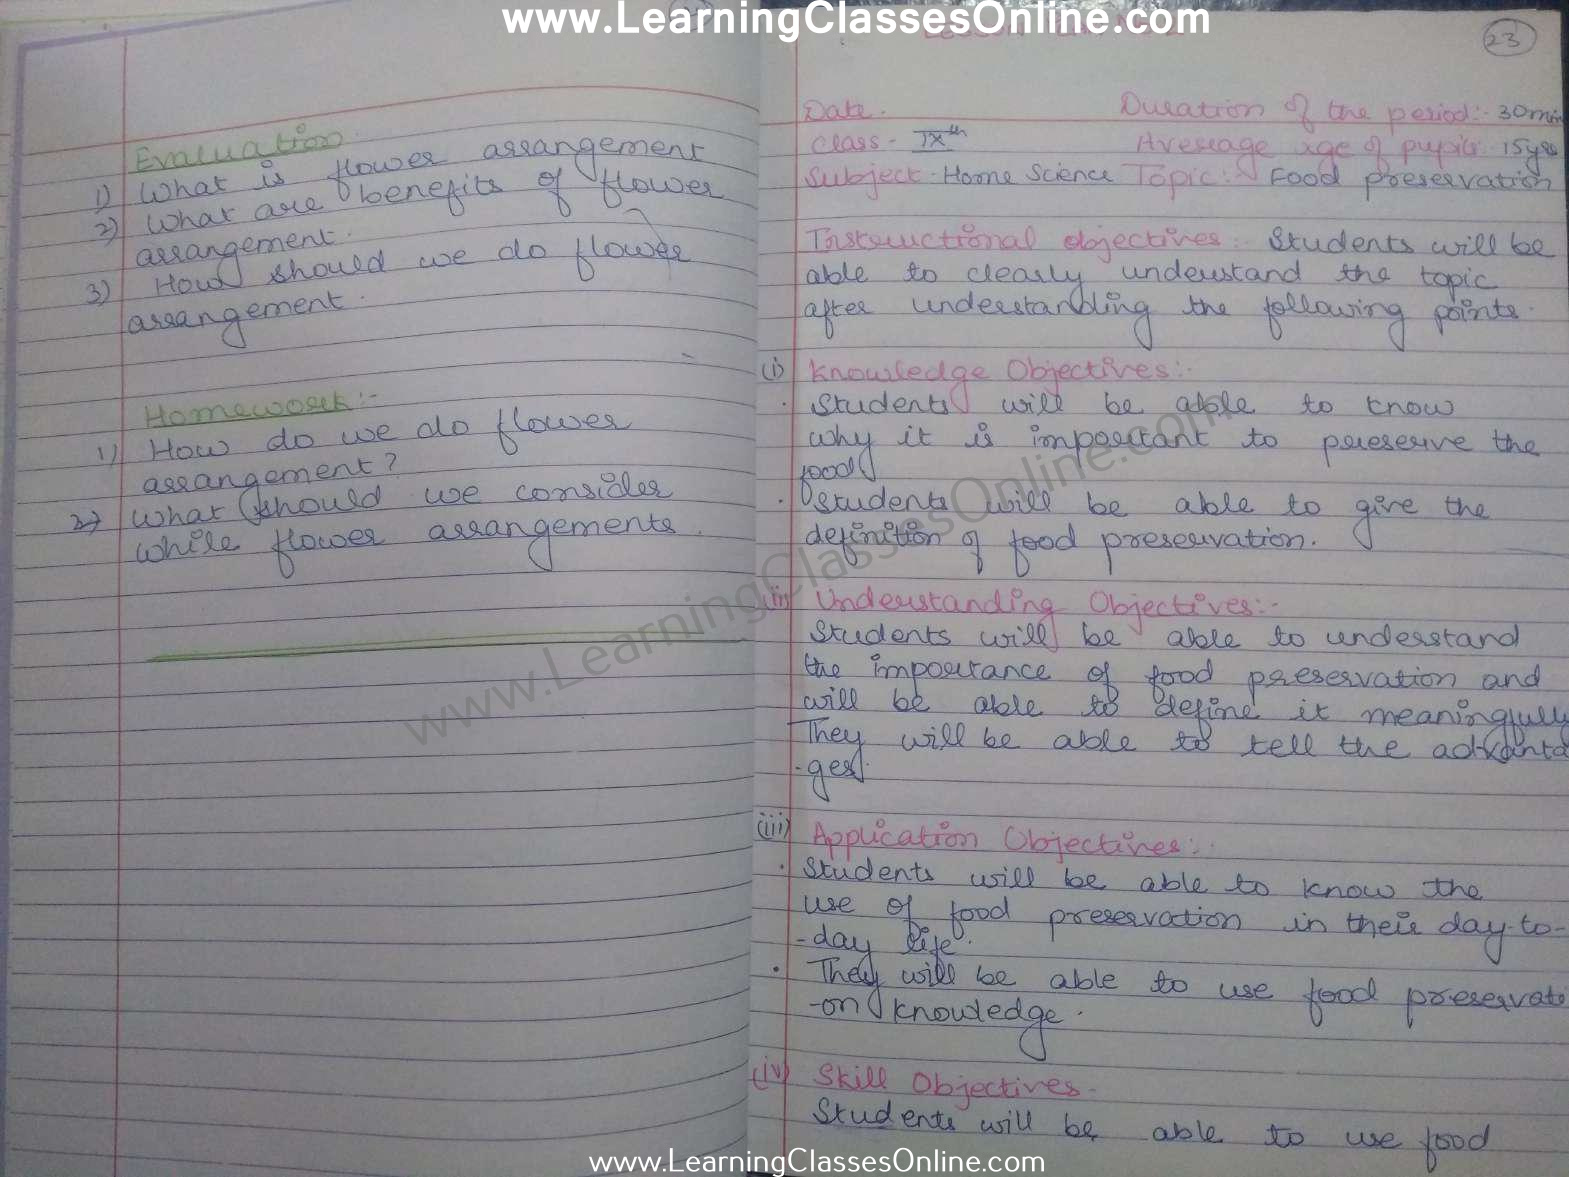 www.LearningClassesOnline.com
Evaluation
1) What is flower arrangement
2) What are benefits of flower
arrangement.
3) How should we do flower
arrangement.
Homework:-
1) How do we do flower
arrangement?
2) What should we consider
while flower arrangements.
23
Date.
Duration of the period:- 30min
Class - IXth
Avereage age of pupils 15yrs
Subject - Home Science Topic:- Food preservation
Instructional objectives:- Students will be
able to clearly understand the topic
after understanding the following points.
(i) Knowledge Objectives:-
. Students will be able to know
why it is important to preserve the
food
. Students will be able to give the
definition of food preservation.
(ii) Understanding Objectives:-
Students will be able to understand
the importance of food preservation and
will be able to define it meaningfully
They will be able to tell the advanta
-ges.
(iii) Application Objectives:-
. Students will be able to know the
use of food preservation in their day-to-
-day life.
. They will be able to use food preservati
-on knowledge.
(iv) Skill Objectives-
Students will be able to use food
www.LearningClassesOnline.com
www.LearningClassesOnline.com